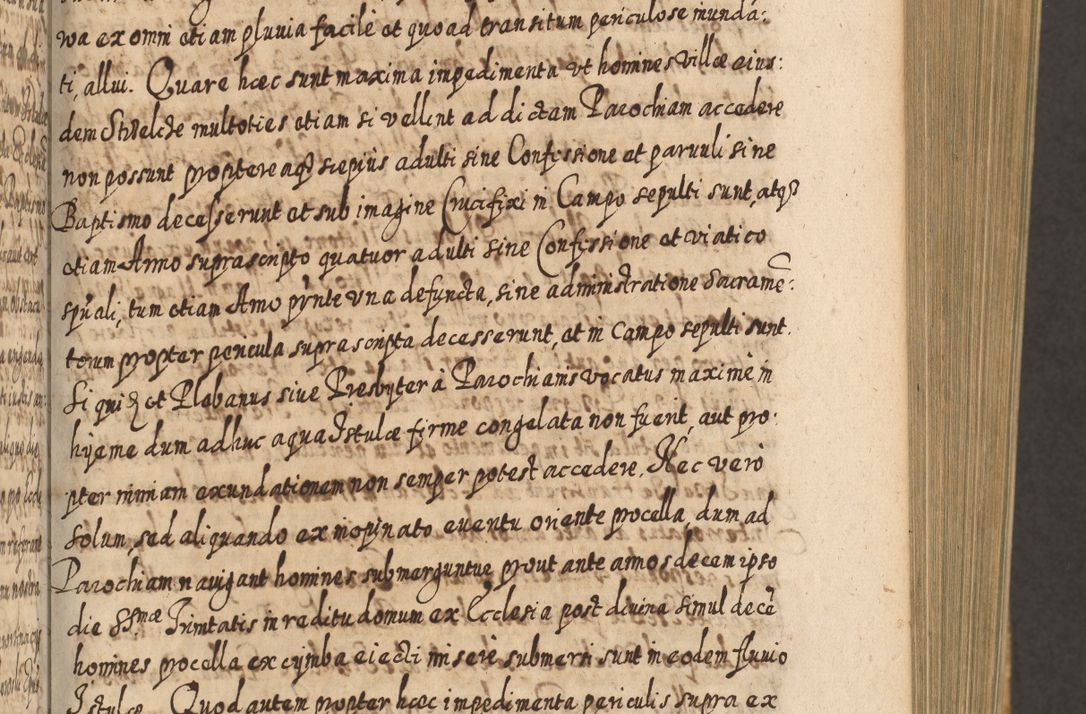 wa ex omni etiam pluuia facile et quoad transitum periculose inunda:
ti, allui. Quare hæc sunt maxima impedimenta vt homines Villæ eius:
dem Strzelcze multoties etiam si vellent ad dictam Parochiam accedere
non possunt proptereaqз sæpiùs adulti sine Confessione et paruuli sine
Baptismo decesserunt et sub imagine Crucifixi in Campo sepulti sunt, atqз
etiam Anno suprascripto quatuor adulti sine Confessione et viatico
spũali, tum etiam Anno pñte vna defuncta, sine administratione Sacramē:
torum propter pericula suprascripta decesserunt, et in Campo sepulti sunt.
Siquidē et Plebanus siue Presbyter à Parochianis vocatus maximè in
hyeme dum adhuc aqua Istulæ firme congelata non fuerit, aut pro:
pter nimiam exundationem non semper potest accedere. Nec verò
solum, sed aliquando ex inopinato euentu oriente procella, dum ad
Parochiam nauigant homines submerguntur prout ante annos decem ipso
die SSmæ Trinitatis in reditu domum ex Ecclesia post diuina simul decē
homines procella ex cymba eiecti miserè submersi sunt in eodem fluuio
Istulæ. Quod autem propter hæc impedimenta periculis supra ex